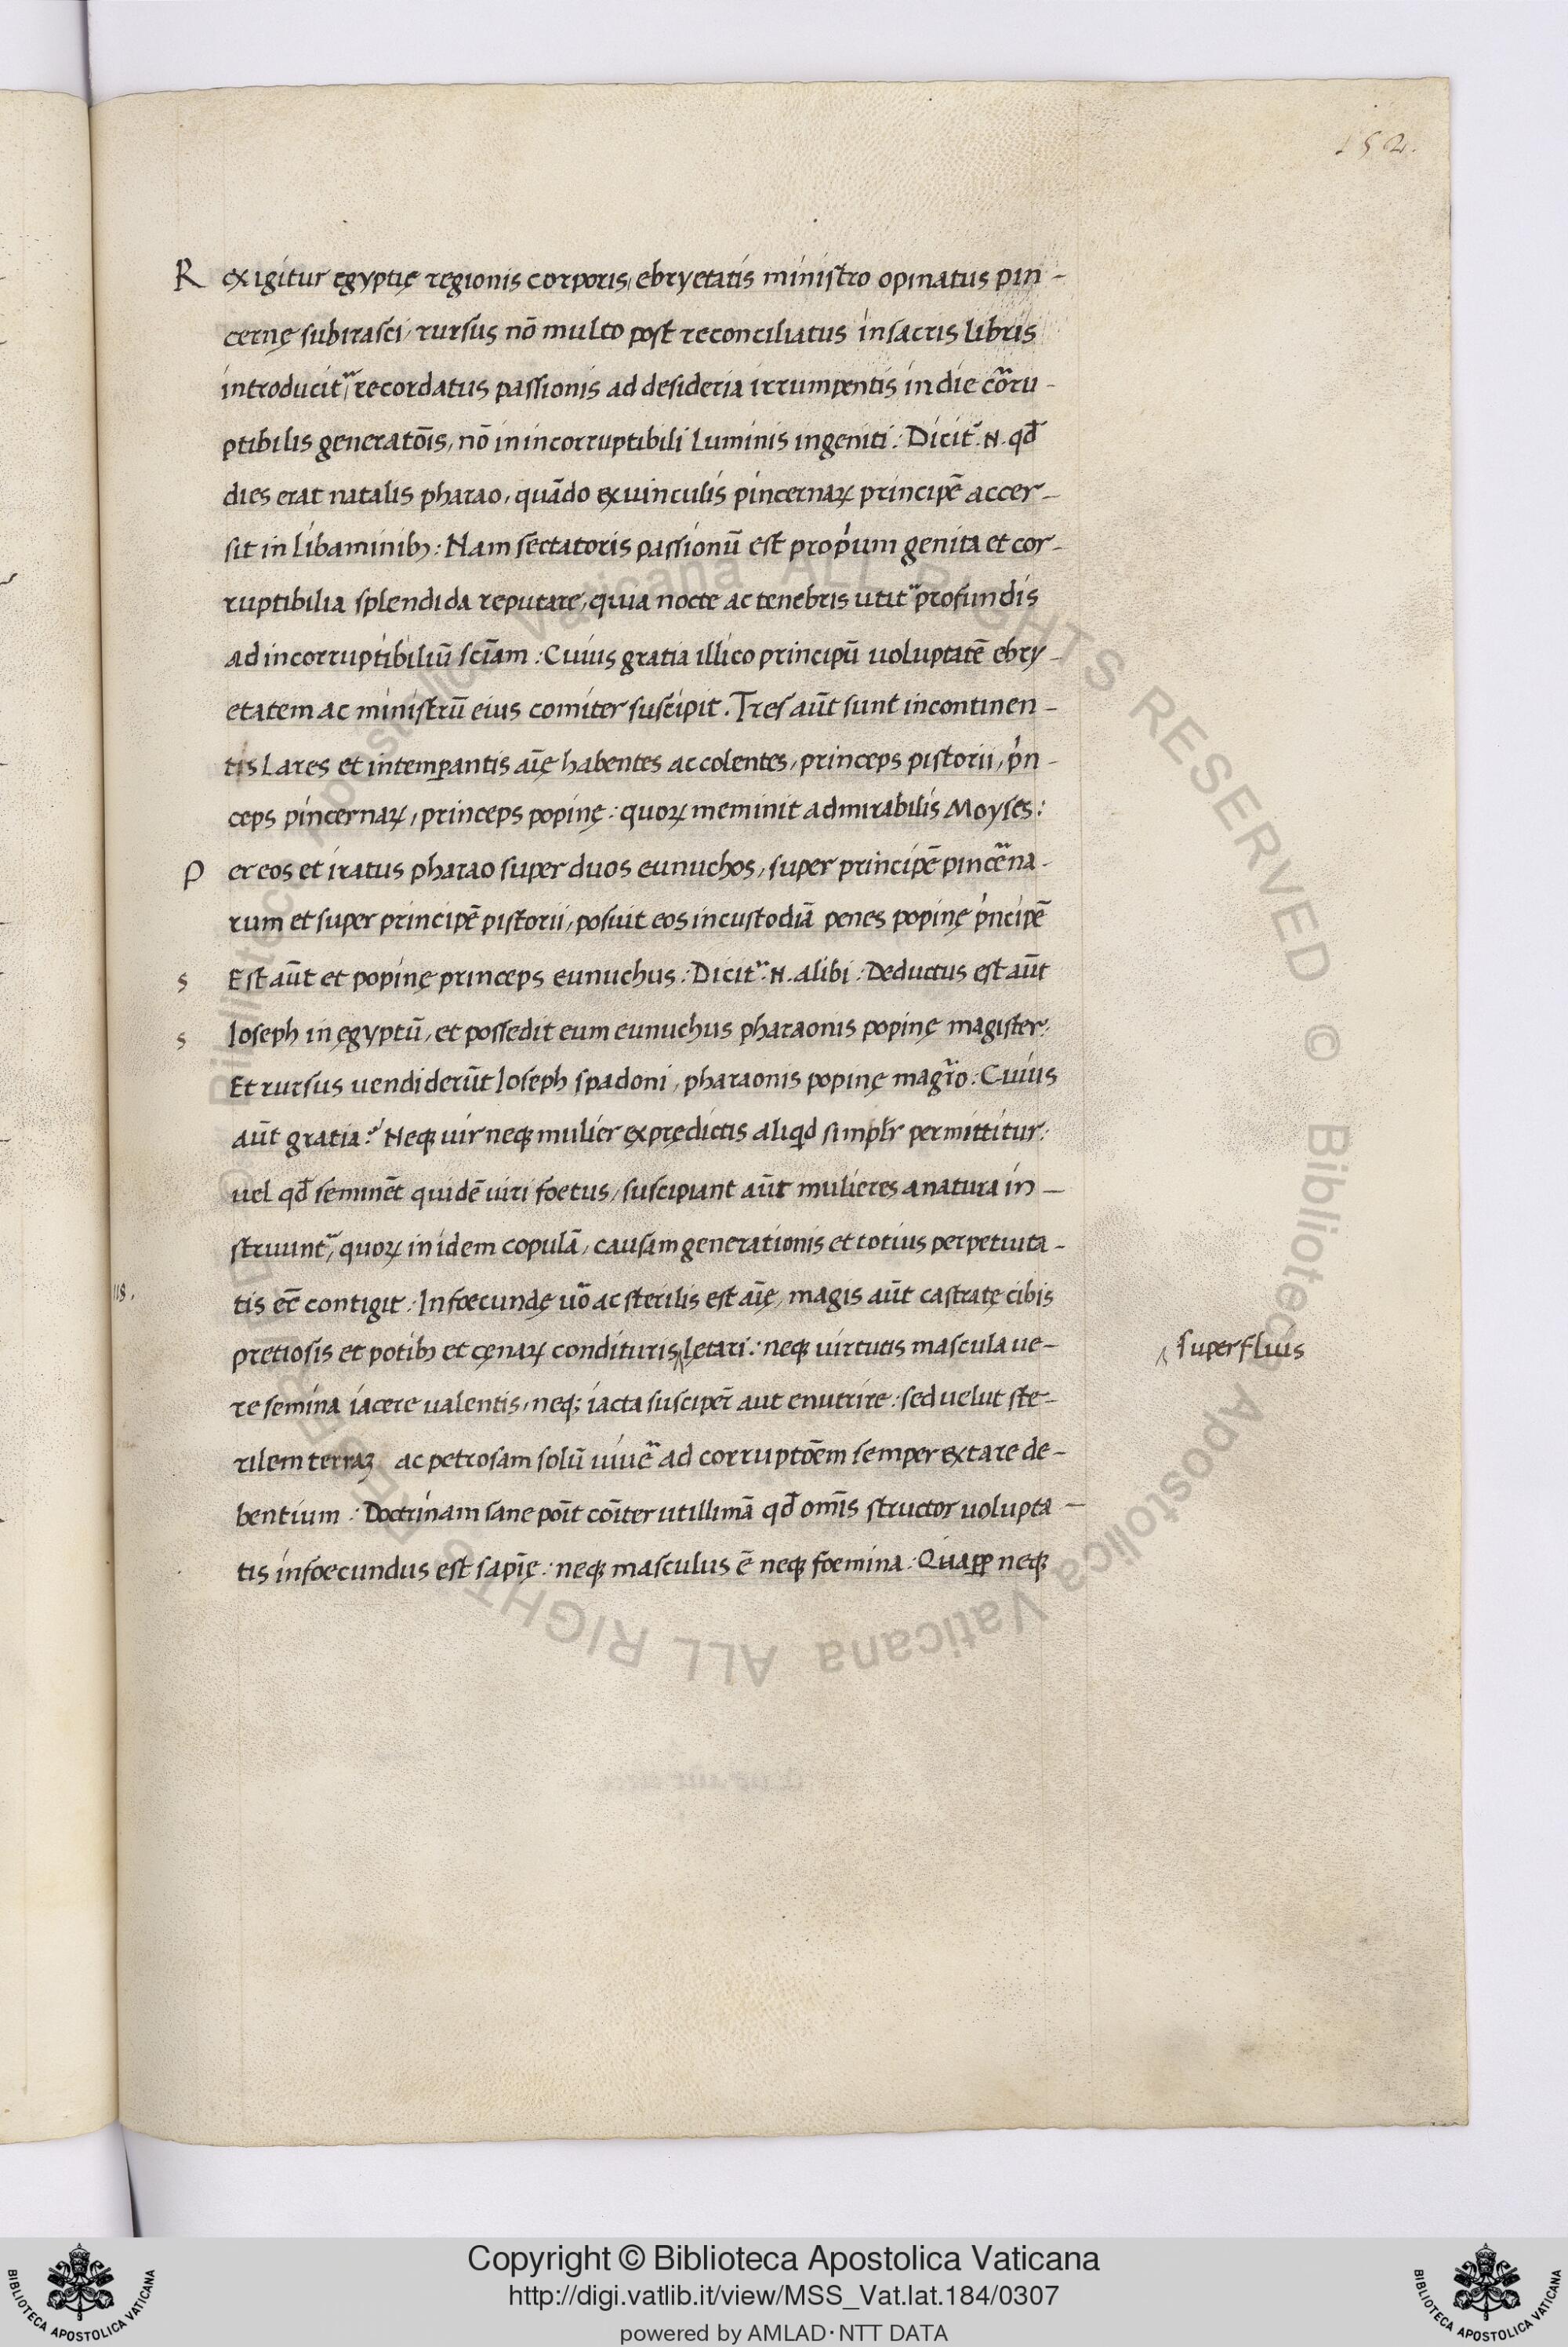 152.
R ex igitur egyptię regionis corporis, ebryetatis ministro opinatus pin-
cernę subirasci, rursus nō multo post reconciliatus in sacris libris
introducit᷑, recordatus passionis ad desideria irrumpentis in die cōru-
ptibilis generatōis, nō in incorruptibili luminis ingeniti: Dicit᷑ .N. qđ
dies erat natalis pharao, quādo ex uinculis pincernaꝝ principē accer-
sit in libaminibꝫ: Nam sectatoris passionū est propͥum genita et cor-
ruptibilia splendida reputare, quia nocte ac tenebris utit᷑ profundis
ad incorruptibiliū scīam: Cuius gratia illico principū uoluptatē ebry-
etatem ac ministrū eius comiter suscipit. Tres aūt sunt incontinen-
tis Lares et intemꝑantis aīę habentes ac colentes, princeps pistorii, pͥn-
ceps pincernaꝝ, princeps popinę: quoꝝ meminit admirabilis Moyses:
P er eos et iratus pharao super duos eunuchos, super principē pincēna-
rum et super principē pistorii, posuit eos in custodiā penes popinę pͥncipē
s Est aūt et popinę princeps eunuchus: Dicit᷑ .N. alibi: Deductus est aūt
s Ioseph in ęgyptū, et possedit eum eunuchus pharaonis popinę magister:
Et rursus uendiderūt Ioseph spadoni, pharaonis popinę magr̄o: Cuius
aūt gratia? Neqꝫ uir neqꝫ mulier ex prędictis aliqͥd simplr̄ permittitur:
uel qđ seminēt quidē uiri foetus, suscipiant aūt mulieres a natura in-
struunt᷑, quoꝝ in idem copulā, causam generationis et totius perpetuita-
118.
tis eē contigit: Infoecundę uō ac sterilis est aīę, magis aūt castratę cibis
pretiosis et potibꝫ et cęnaꝝ condituris ‸ lętari: neqꝫ uirtutis mascula ue-
‸ superfluis
re semina iacere ualentis, neqꝫ iacta susciper̄ aut enutrire: sed uelut ste-
rilem terraꝫ ac petrosam solū uiuē ad corruptōem semper extare de-
bentium: Doctrinam sane poīt cōiter utillimā qđ omīs structor uolupta-
tis infoecundus est sapīę: neqꝫ masculus ē neqꝫ foemina: Quaꝓꝑ neqꝫ
© Biblioteca Apostolica Vaticana ALL RIGHTS RESERVED © Biblioteca Apostolica Vaticana ALL RIGHTS RESERVED
BIBLIOTECA APOSTOLICA VATICANA
Copyright © Biblioteca Apostolica Vaticana
http://digi.vatlib.it/view/MSS_Vat.lat.184/0307
powered by AMLAD·NTT DATA
BIBLIOTECA APOSTOLICA VATICANA